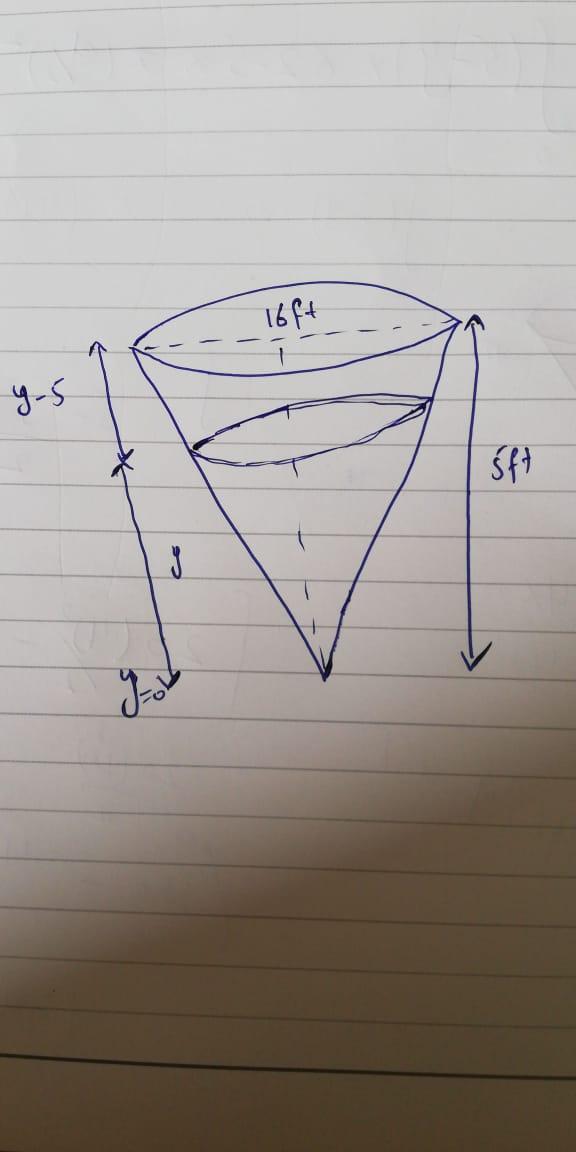 16ft
y-5
5ft
y
y=0